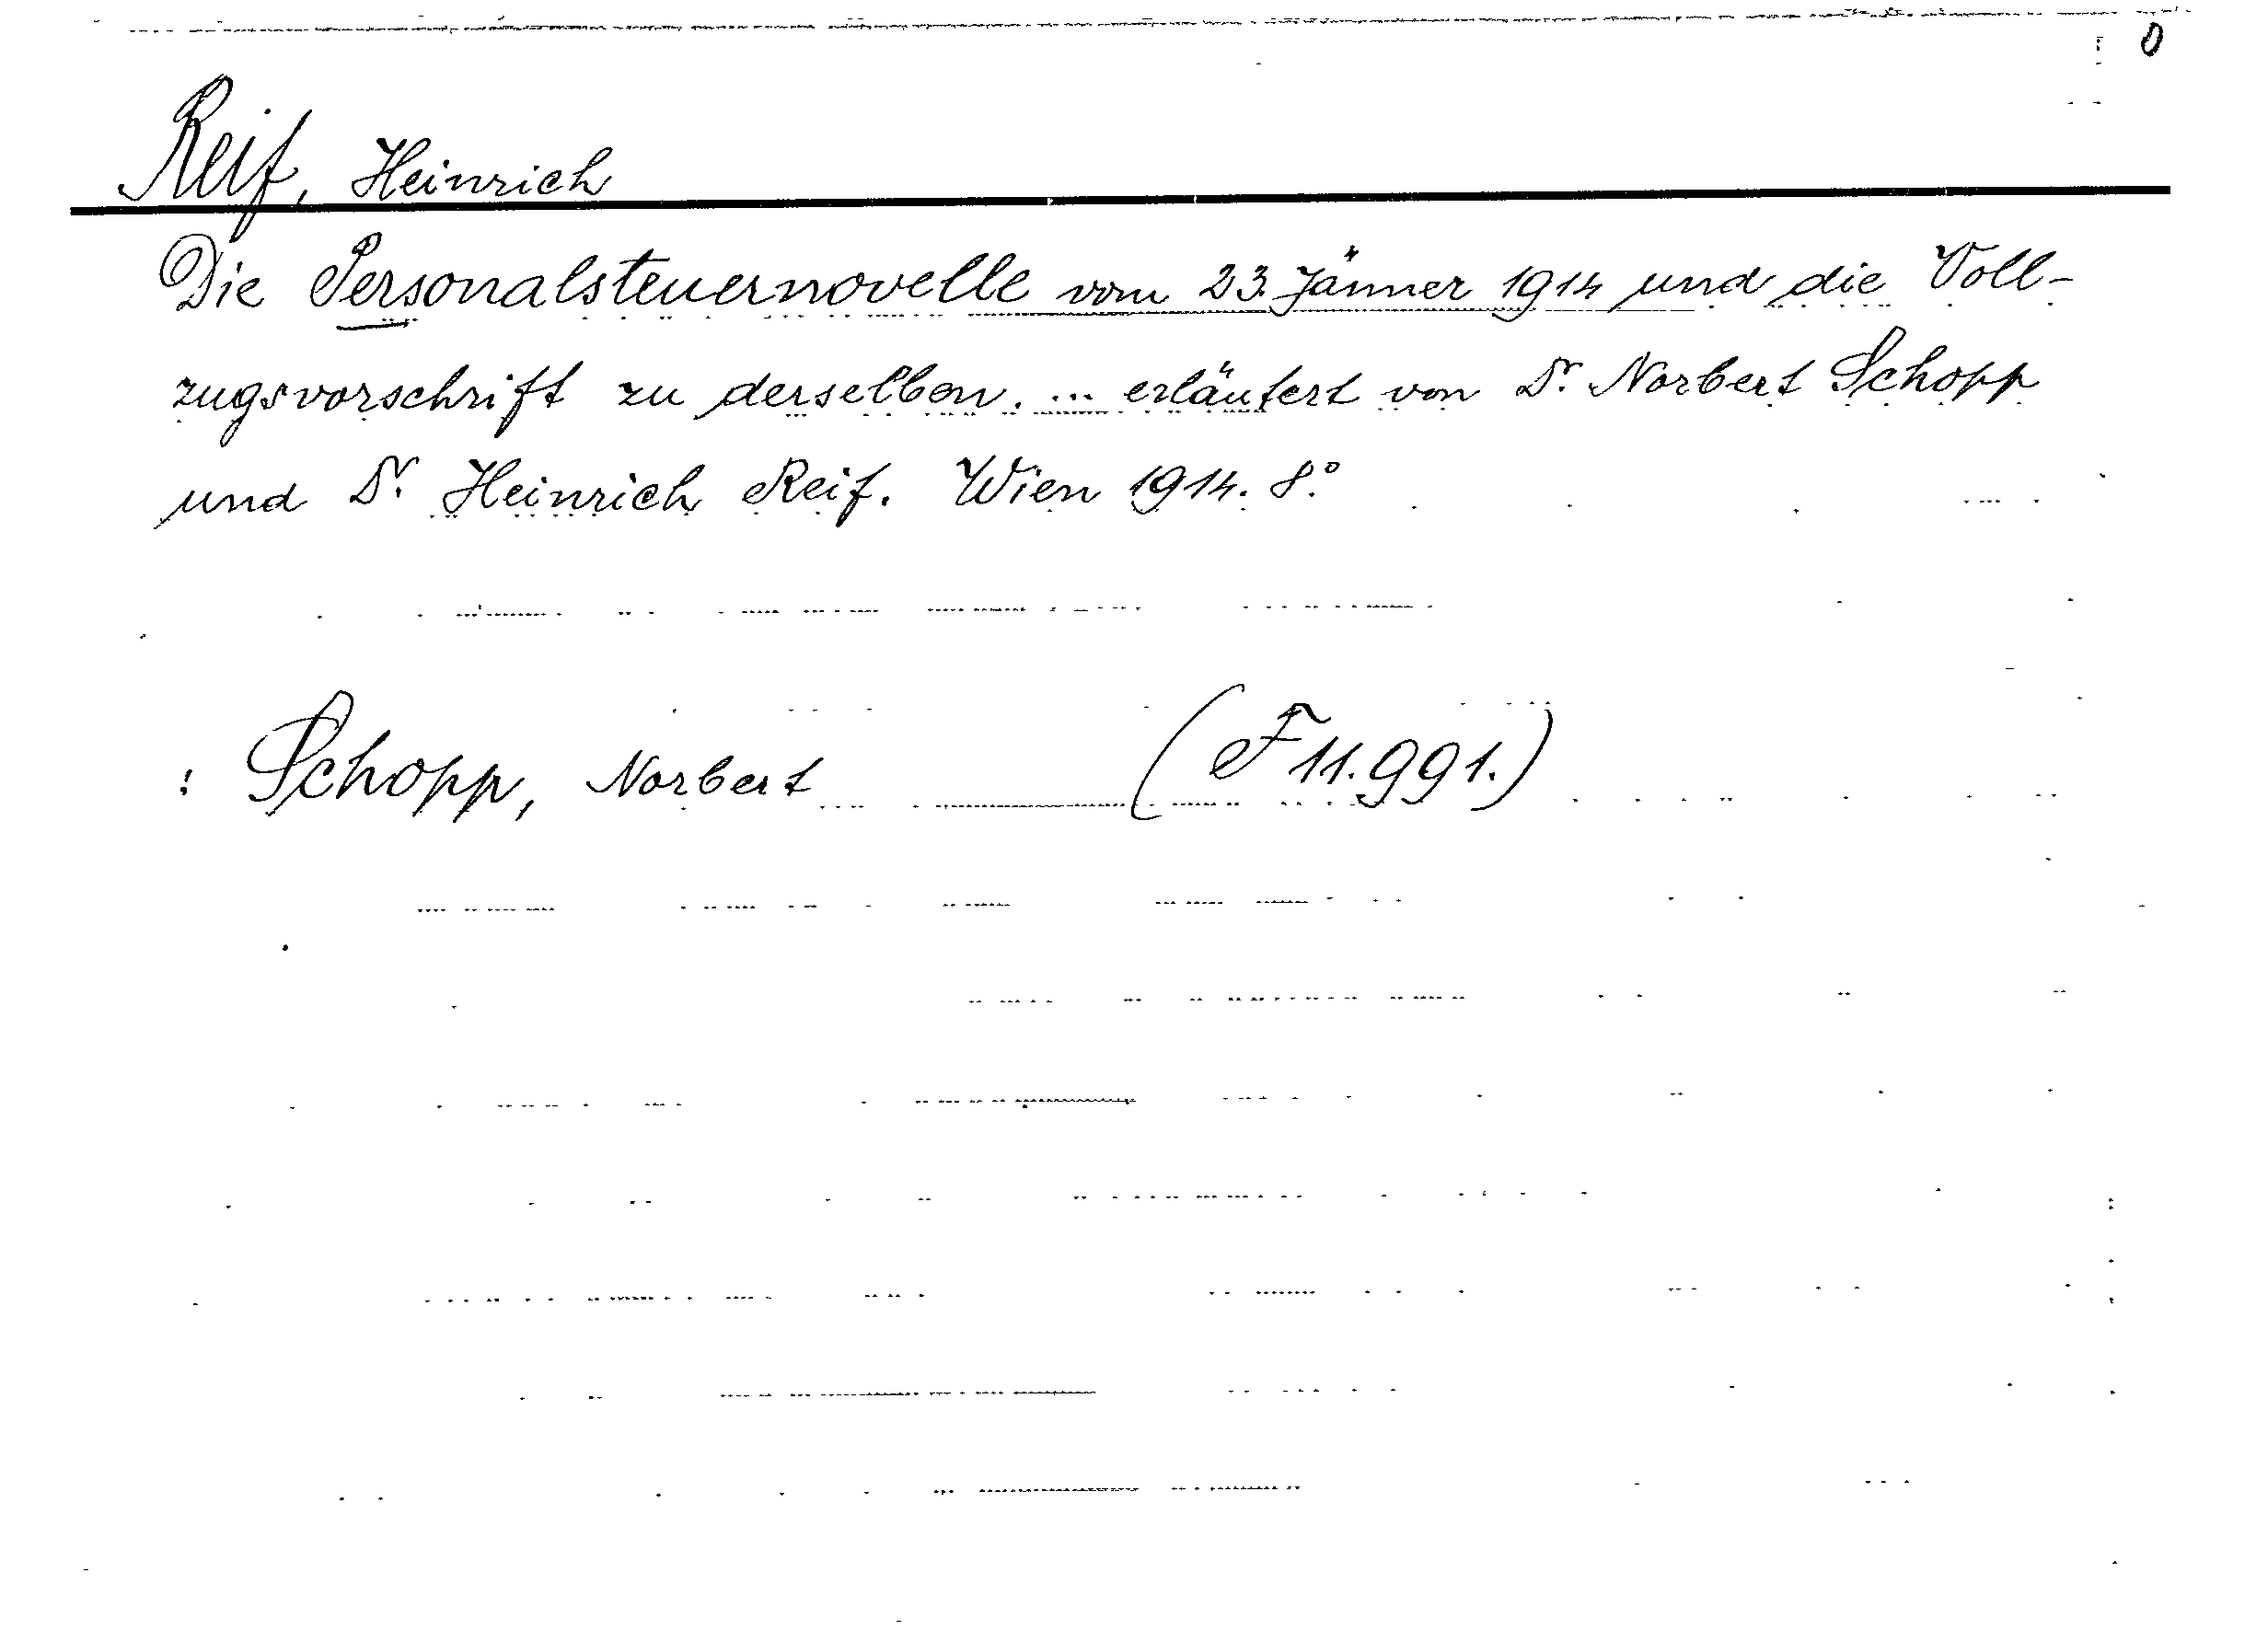 0
Reif, Heinrich
Die Personalsteuernovelle vom 23. Jänner 1914 und die Voll-
zugsvorschrift zu derselben. ... erläutert von Dr. Norbert Schopp
und Dr. Heinrich Reif. Wien 1914. 8.°
: Schopp, Norbert (F 11.991.)